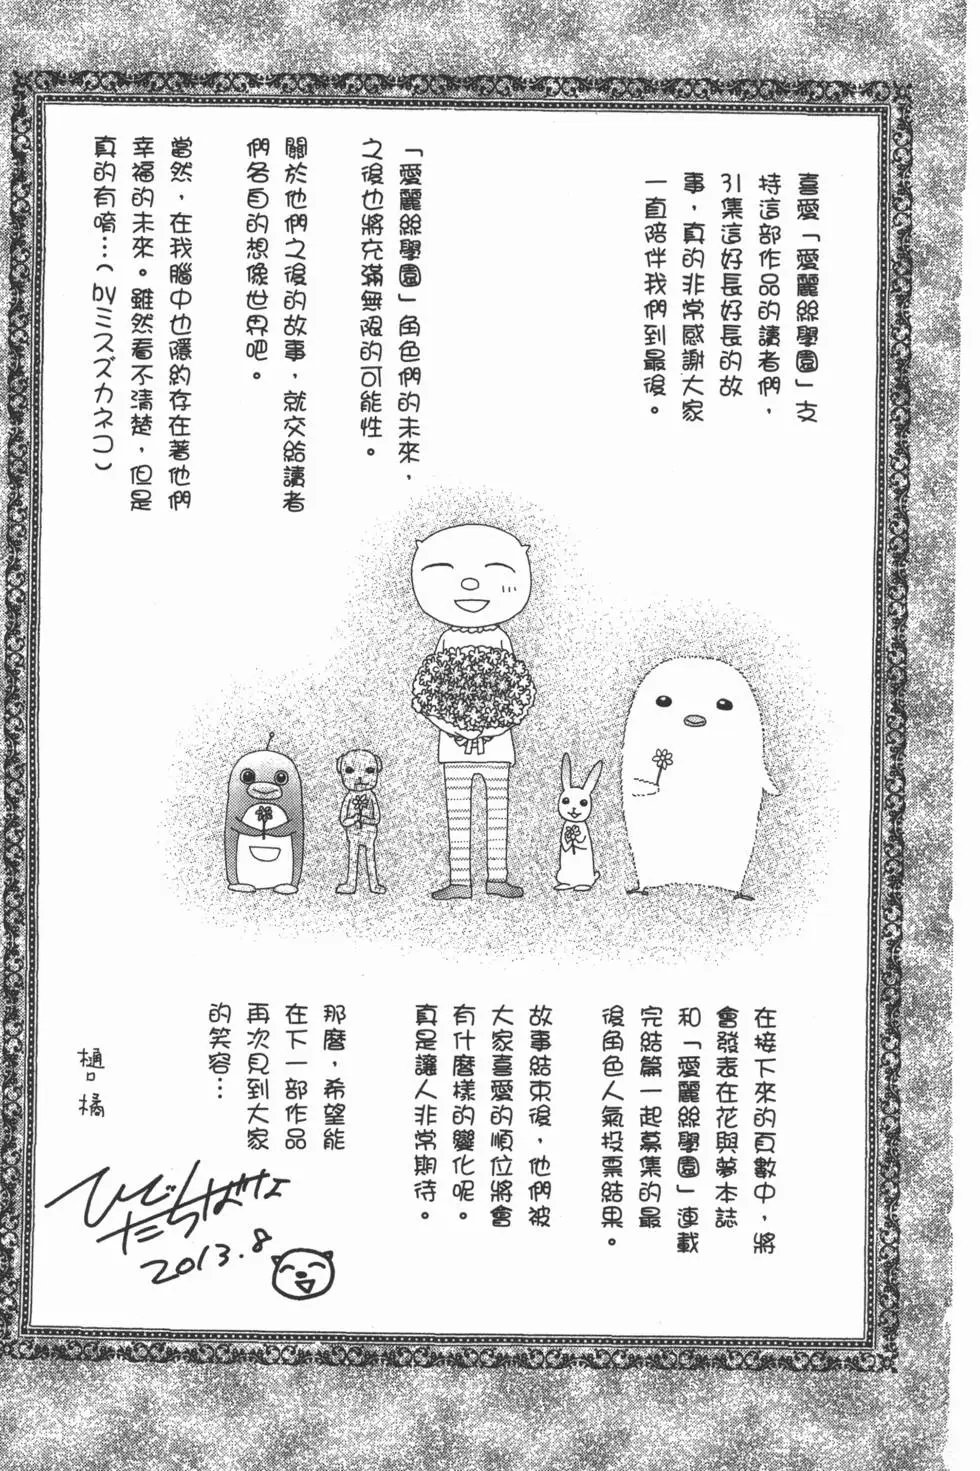 喜愛「愛麗絲學園」支
持這部作品的讀者們,
引集這好長好長的故
事,真的非常感謝大家
一直陪伴我們到最後。
「愛麗絲學園」角色們的未來,
之後也將充滿無限的可能性。
關於他們之後的故事,就交給讀者
們各自的想像世界吧。
當然,在我腦中也隱約存在著他們
幸福的未來。雖然看不清楚,但是
真的有唷…(byミスズカネコ)
在接下來的頁數中,將
會發表在花與夢本誌
和「愛麗絲學園」連載
完結篇一起募集的最
後角色人氣投票結果。
故事結束後,他們被
大家喜愛的順位將會
有什麼樣的變化呢。
真是讓人非常期待。
那麼,希望能
在下一部作品
再次見到大家
的笑容…
樋口 橘
ひぐち
たちばな
2013.8